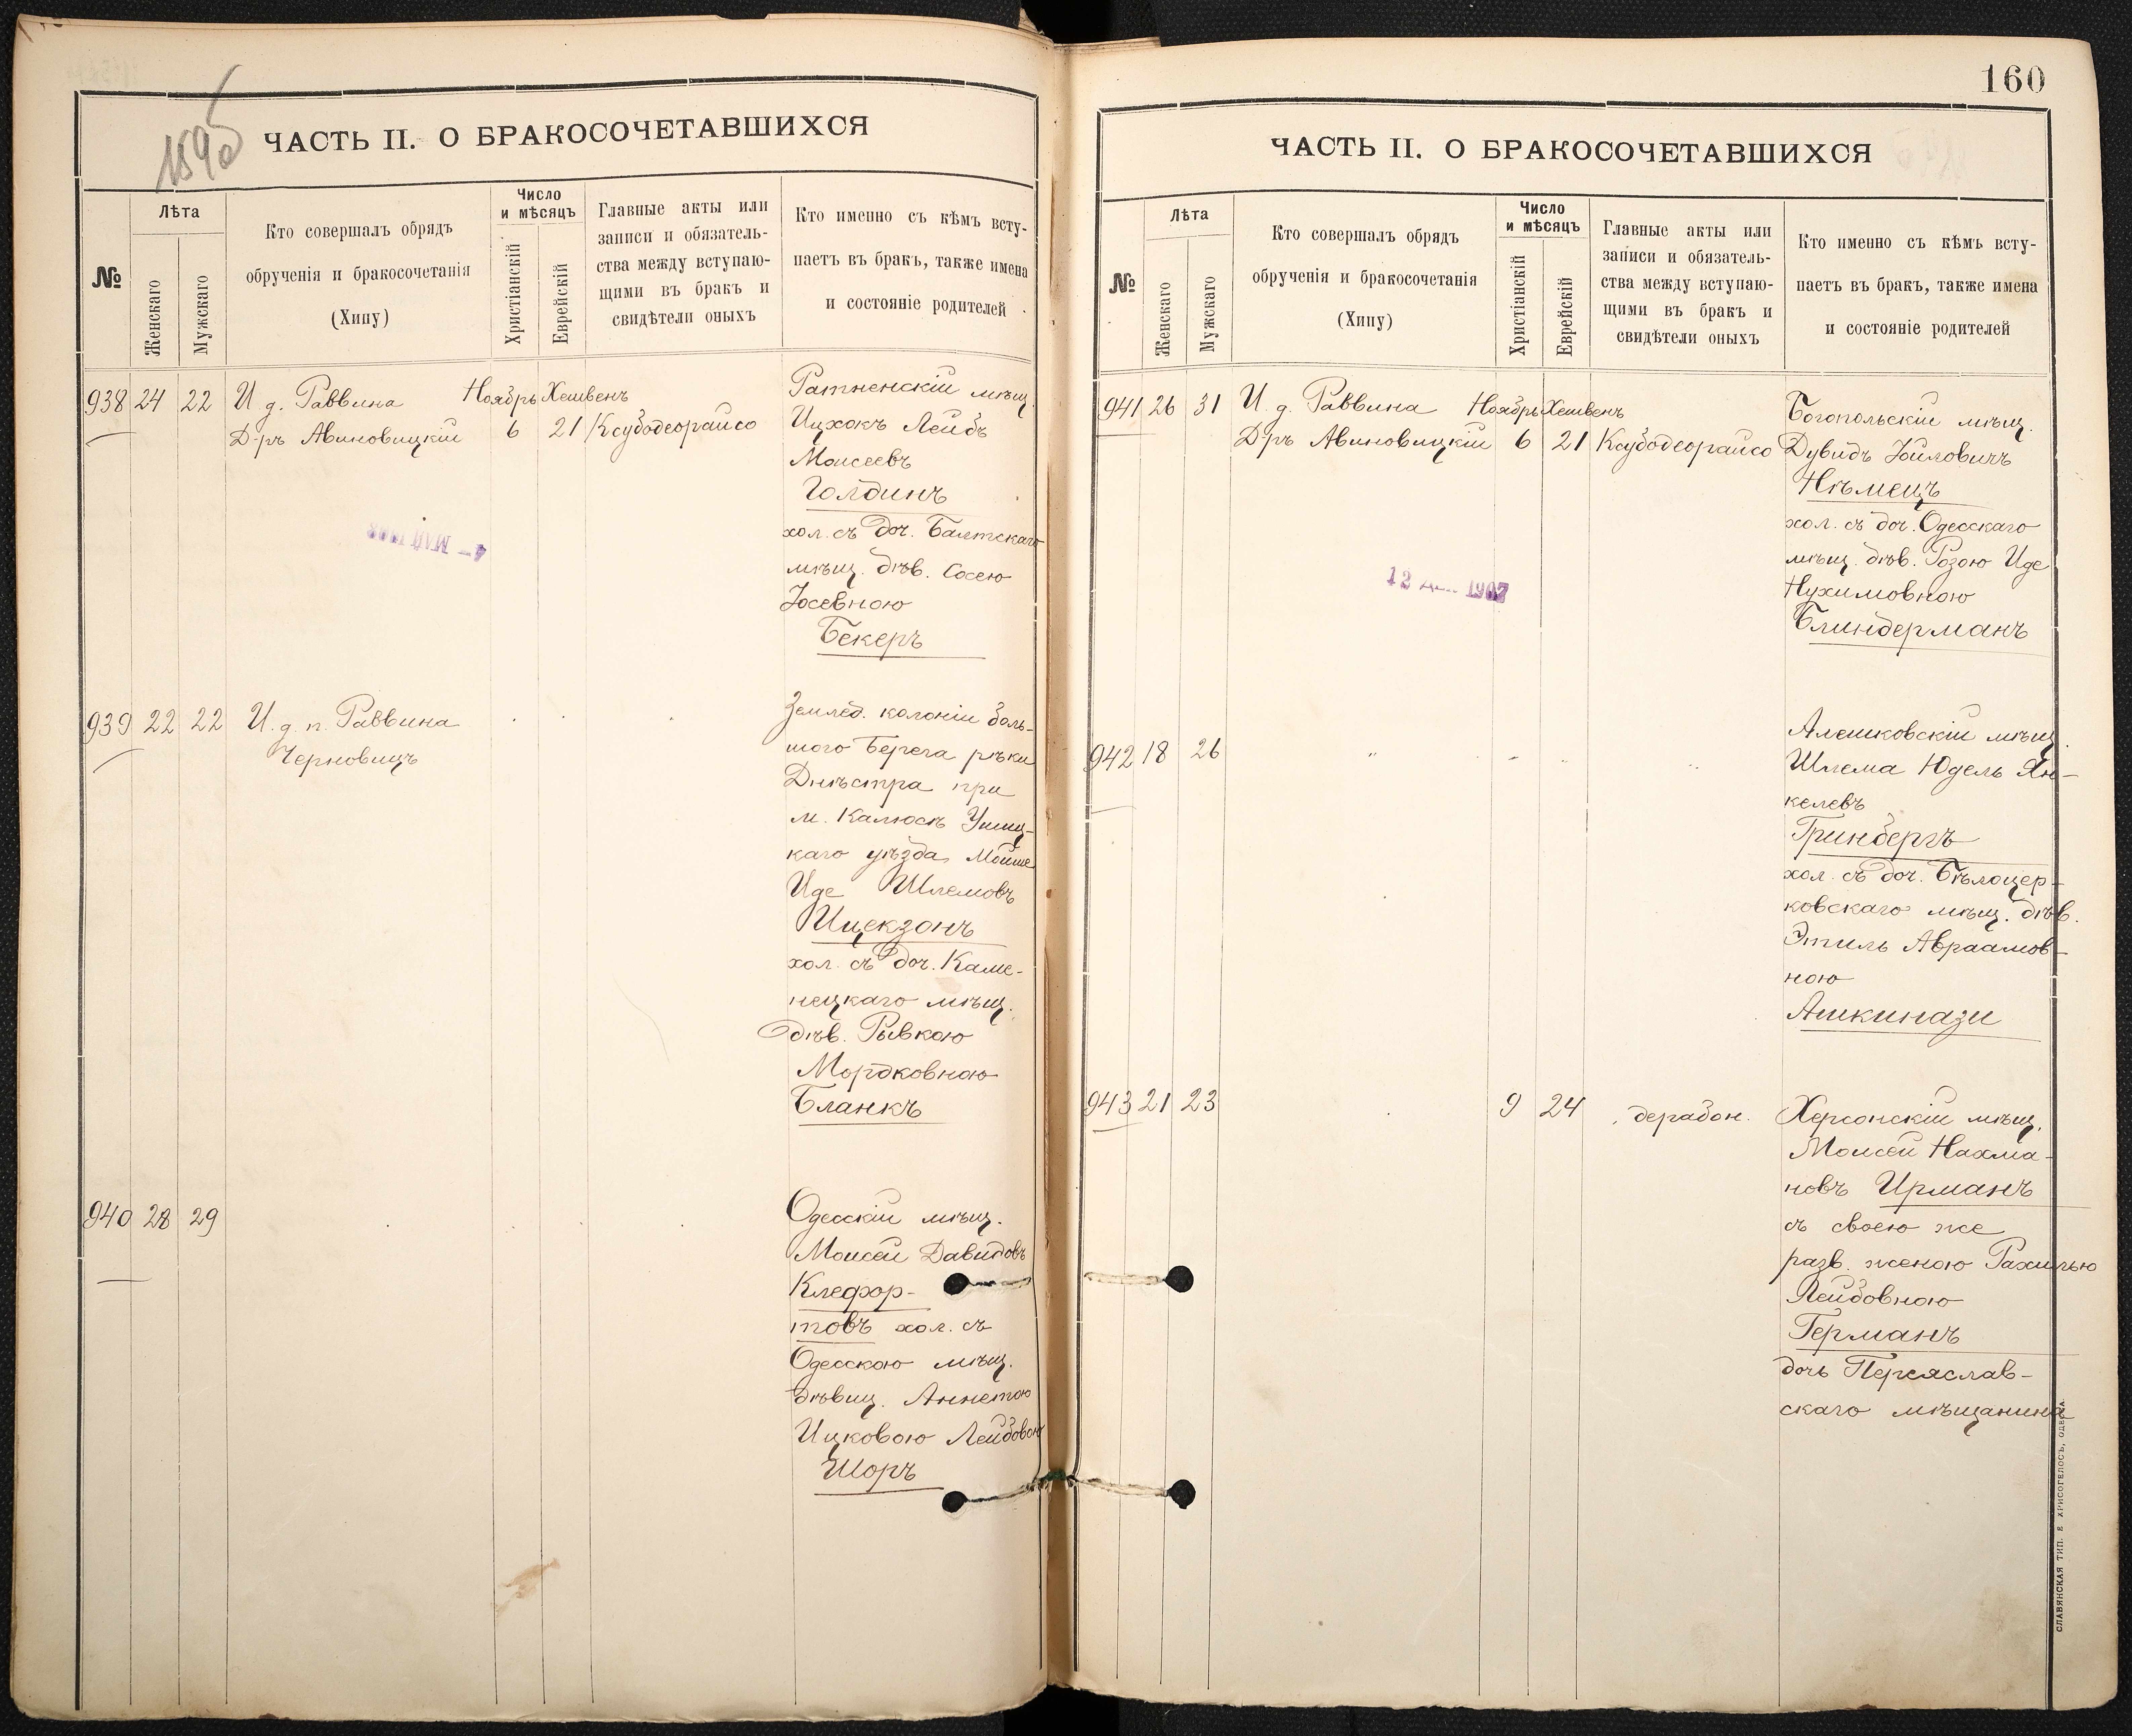 1895
ЧАСТЬ II. О БРАКОСОЧЕТАВШИХСЯ
№
Лѣта
Женскаго
Мужскаго
Кто совершалъ обрядъ
обрученія и бракосочетанія
(Хипу)
Число
и мѣсяцъ
Христіанскій
Еврейскій
Главные акты или
записи и обязатель-
ства между вступаю-
щими въ бракъ и
свидѣтели оныхъ
Кто именно съ кѣмъ всту-
паетъ въ бракъ, также имена
и состояніе родителей
938 24 22 И. д. Раввина Ноябрь Хешвенъ
Д-ръ Авиновицкій 6 21 Ксубодеорайсо
Ратненскій мѣщ.
Ицхокъ Лейбъ
Моисеевъ
Голдинъ
хол. съ доч. Балтскаго
мѣщ. дѣв. Сосею
Іосевною
Бекеръ
4 - МАЙ 1908
939 22 22 И. д. п. Раввина
Черновицъ
Землед. колоніи боль-
шого берега рѣки
Днѣстра при
м. Калюсъ Ушиц-
каго уѣзда Мойше
Иде Шлемовъ
Ицекзонъ
хол. съ доч. Каме-
нецкаго мѣщ.
дѣв. Рывкою
Мордковною
Бланкъ
940 28 29
Одесскій мѣщ.
Моисей Давидовъ
Клефор-
товъ хол. съ
Одесскою мѣщ.
дѣвиц. Аннетою
Ицковою Лейбовою
Шоръ
160
ЧАСТЬ II. О БРАКОСОЧЕТАВШИХСЯ
№
Лѣта
Женскаго
Мужскаго
Кто совершалъ обрядъ
обрученія и бракосочетанія
(Хипу)
Число
и мѣсяцъ
Христіанскій
Еврейскій
Главные акты или
записи и обязатель-
ства между вступаю-
щими въ бракъ и
свидѣтели оныхъ
Кто именно съ кѣмъ всту-
паетъ въ бракъ, также имена
и состояніе родителей
941 26 31 И. д. Раввина Ноябрь Хешвенъ
Д-ръ Авиновицкій 6 21 Ксубодеорайсо
Богопольскій мѣщ.
Дувидъ Іойловичъ
Нѣмецъ
хол. съ доч. Одесскаго
мѣщ. дѣв. Розою Иде
Нухимовною
Блиндерманъ
12 1907
942 18 26 "
Алешковскій мѣщ.
Шлема Юдель Ян-
келевъ
Гринбергъ
хол. съ доч. Бѣлоцер-
ковскаго мѣщ. дѣв.
Этиль Авраамов-
ною
Ашкинази
943 21 23 9 24 дерабон.
Херсонскій мѣщ.
Моисей Нахма-
новъ Ирманъ
съ своею же
разв. женою Рахилью
Лейбовною
Германъ
дочь Переяслав-
скаго мѣщанина
СЛАВЯНСКАЯ ТИП. Е. ХРИСОГЕЛОСЪ, ОДЕССА.